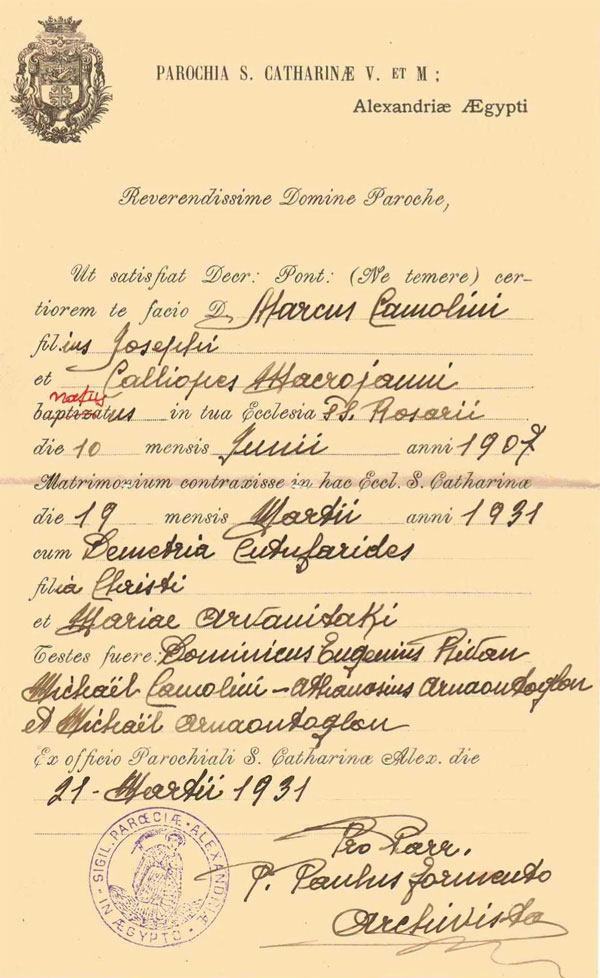 PAROCHIA S. CATHARINÆ V. ET M :
Alexandriæ Ægypti
Reverendissime Domine Paroche,
Ut satisfiat Decr: Pont: (Ne temere) cer-
tiorem te facio D. Marcus Camolini
filius Josephi
et Calliopes Macrojanni
natus
baptizatus in tua Ecclesia SS. Rosarii
die 10 mensis Junii anni 1907
Matrimonium contraxisse in hac Eccl. S. Catharina
die 19 mensis Martii anni 1931
cum Demetria Cutufarides
filia Christi
et Mariae Arvanitaki
Testes fuere: Dominicus Eugenius
Michaël Camolini - Athanasius Arnaoutoglou
et Michaël Arnaoutoglou
Ex officio Parochiali S. Catharinæ Alex. die
21 - Martii 1931
Pro Parr.
P. Paulus Formento
Archivista
SIGIL. PARŒCIÆ - ALEXANDRIÆ - IN ÆGYPTO -